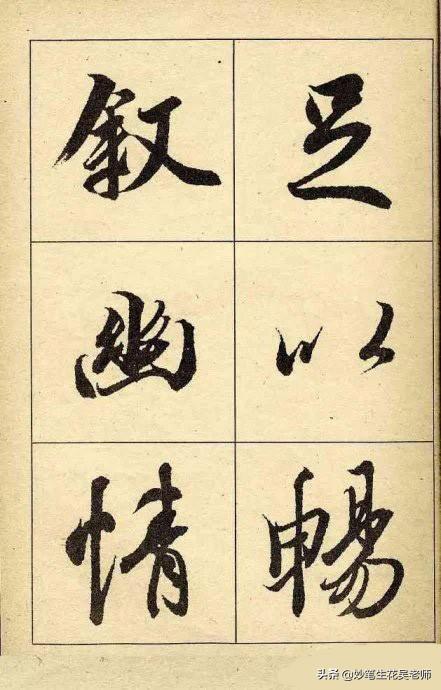 足以暢
叙幽情
头条 @妙笔生花吴老师